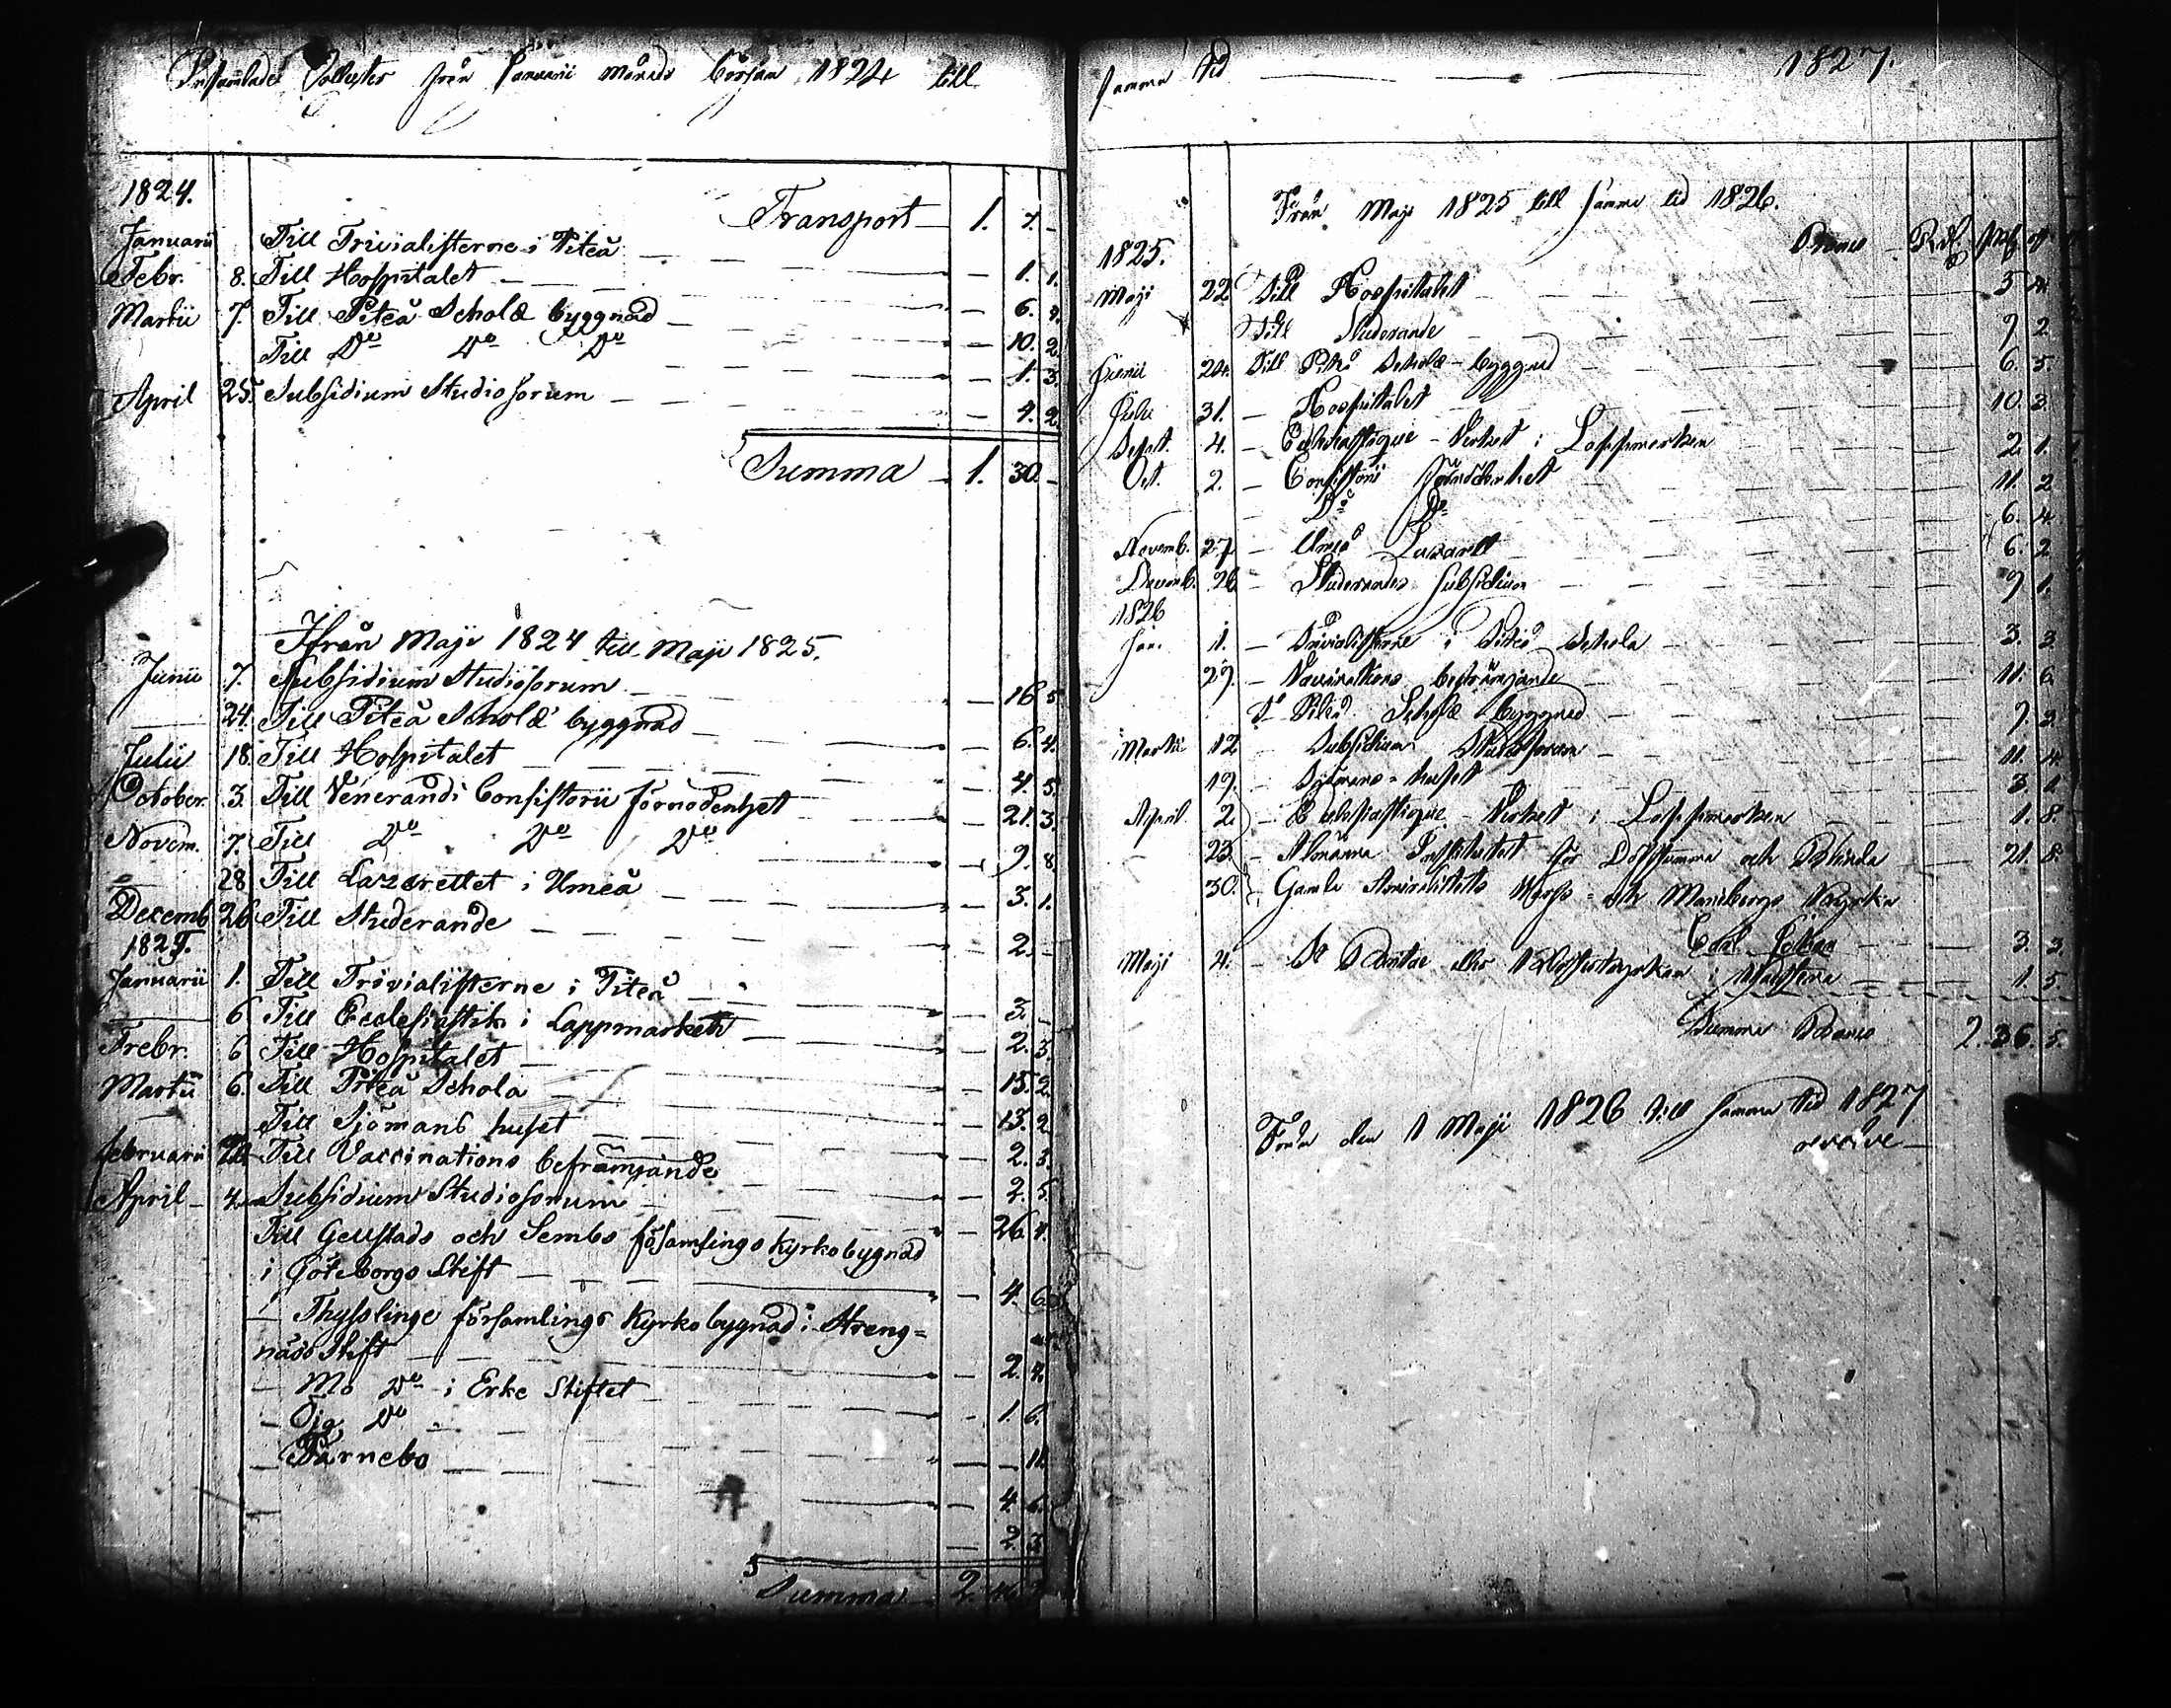 Insamlade Collecter från Januarii månads början 1824 till
1824.
Transport 1. 7. -
Januarii Till Trivialisterne i Piteå - 1. 1.
Febr. 8. Till Hospitalet - 6. 4.
Martii 7. Till Piteå Scholæ byggnad - 10. 2.
Till Do Do Do - 1. 3.
April 25. Subsidium Studiosorum - 4. 2.
Summa 1. 30. -
Ifrån Maji 1824 till Maji 1825.
Junii 7. Subsidium Studiosorum - 16. 5.
24. Till Piteå Scholæ byggnad - 6. 4.
Julii 18. Till Hospitalet - 4. 5.
October. 3. Till Venerandi Consistorii förnödenhet - 21. 3.
Novem. 7. Till Do Do Do - 9. 8.
28. Till Lazarettet i Umeå - 3. 1.
Decemb 26. Till Studerande - 2. -
1825.
Januarii 1. Till Trivialisterne i Piteå - 3. -
6 Till Ecclesiastik i Lappmarken - 2. 3.
Frebr. 6 Till Hospitalet - 15. 2.
Martii 6. Till Piteå Schola - 13. 2.
Till Sjömans huset - 2. 3.
Februarii Till Vaccinations befrämjande - 2. 5.
April 4. Subsidium Studiosorum - 26. 4.
Till Gellstads och Sembs församlings Kyrkobygnad
i Göteborgs Stift - 4. 6.
- Thysslinge församlings Kyrkobygnad i Streng=
näss Stift - 2. 4.
- Mo Do i Erke Stiftet - 1. 6.
- Öja Do - - 11.
- Färnebo - 4. 6.
- 2. 3.
Summa 2.
samma tid 1827.
Från Maji 1825 till samma tid 1826.
Banco Rd. sk. rst
1825.
Maji 22 Till Hospitalet 5. 4.
Till Studerande 9. 2.
Junii 24. Till Piteå Scholæ-byggnad 6. 5.
Julii 31. - Hospitalet 10. 3.
Sept. 4. - Ecclesiastique-Verket i Lappmarken 2. 1.
Oct. 2. - Consistorii förnödenhet 11. 2
Do Do 6. 4.
Novemb. 27 - Umeå Lazarett 6. 2
Decemb. 26 - Studerandes subsidium 9. 1.
1826
Jan. 1. - Trivialisterne i Piteå Schola 3. 3
29. - Vaccinationens befrämjande 11. 6.
Do Piteå Scholæ byggnad 9. 3.
Martii 12 - Subsidium Studiosorum 11. 4.
19. - Sjömans-huset 3. 1
April 2. - Ecclesiastique-Verket i Lappmarken 1. 8.
23. - Almänna Institutet för Döfstumma och Blinda 21. 8.
30. - Gamla Amiralitets Wärfs- och Marieberga Kyrka
3. 3.
Maji 4. - St Britæ eller Klosterkyrkan i Wadstena 1. 5.
Summa Banco 2. 36. 5.
Från den 1 Maji 1826 till samma tid 1827
revolve